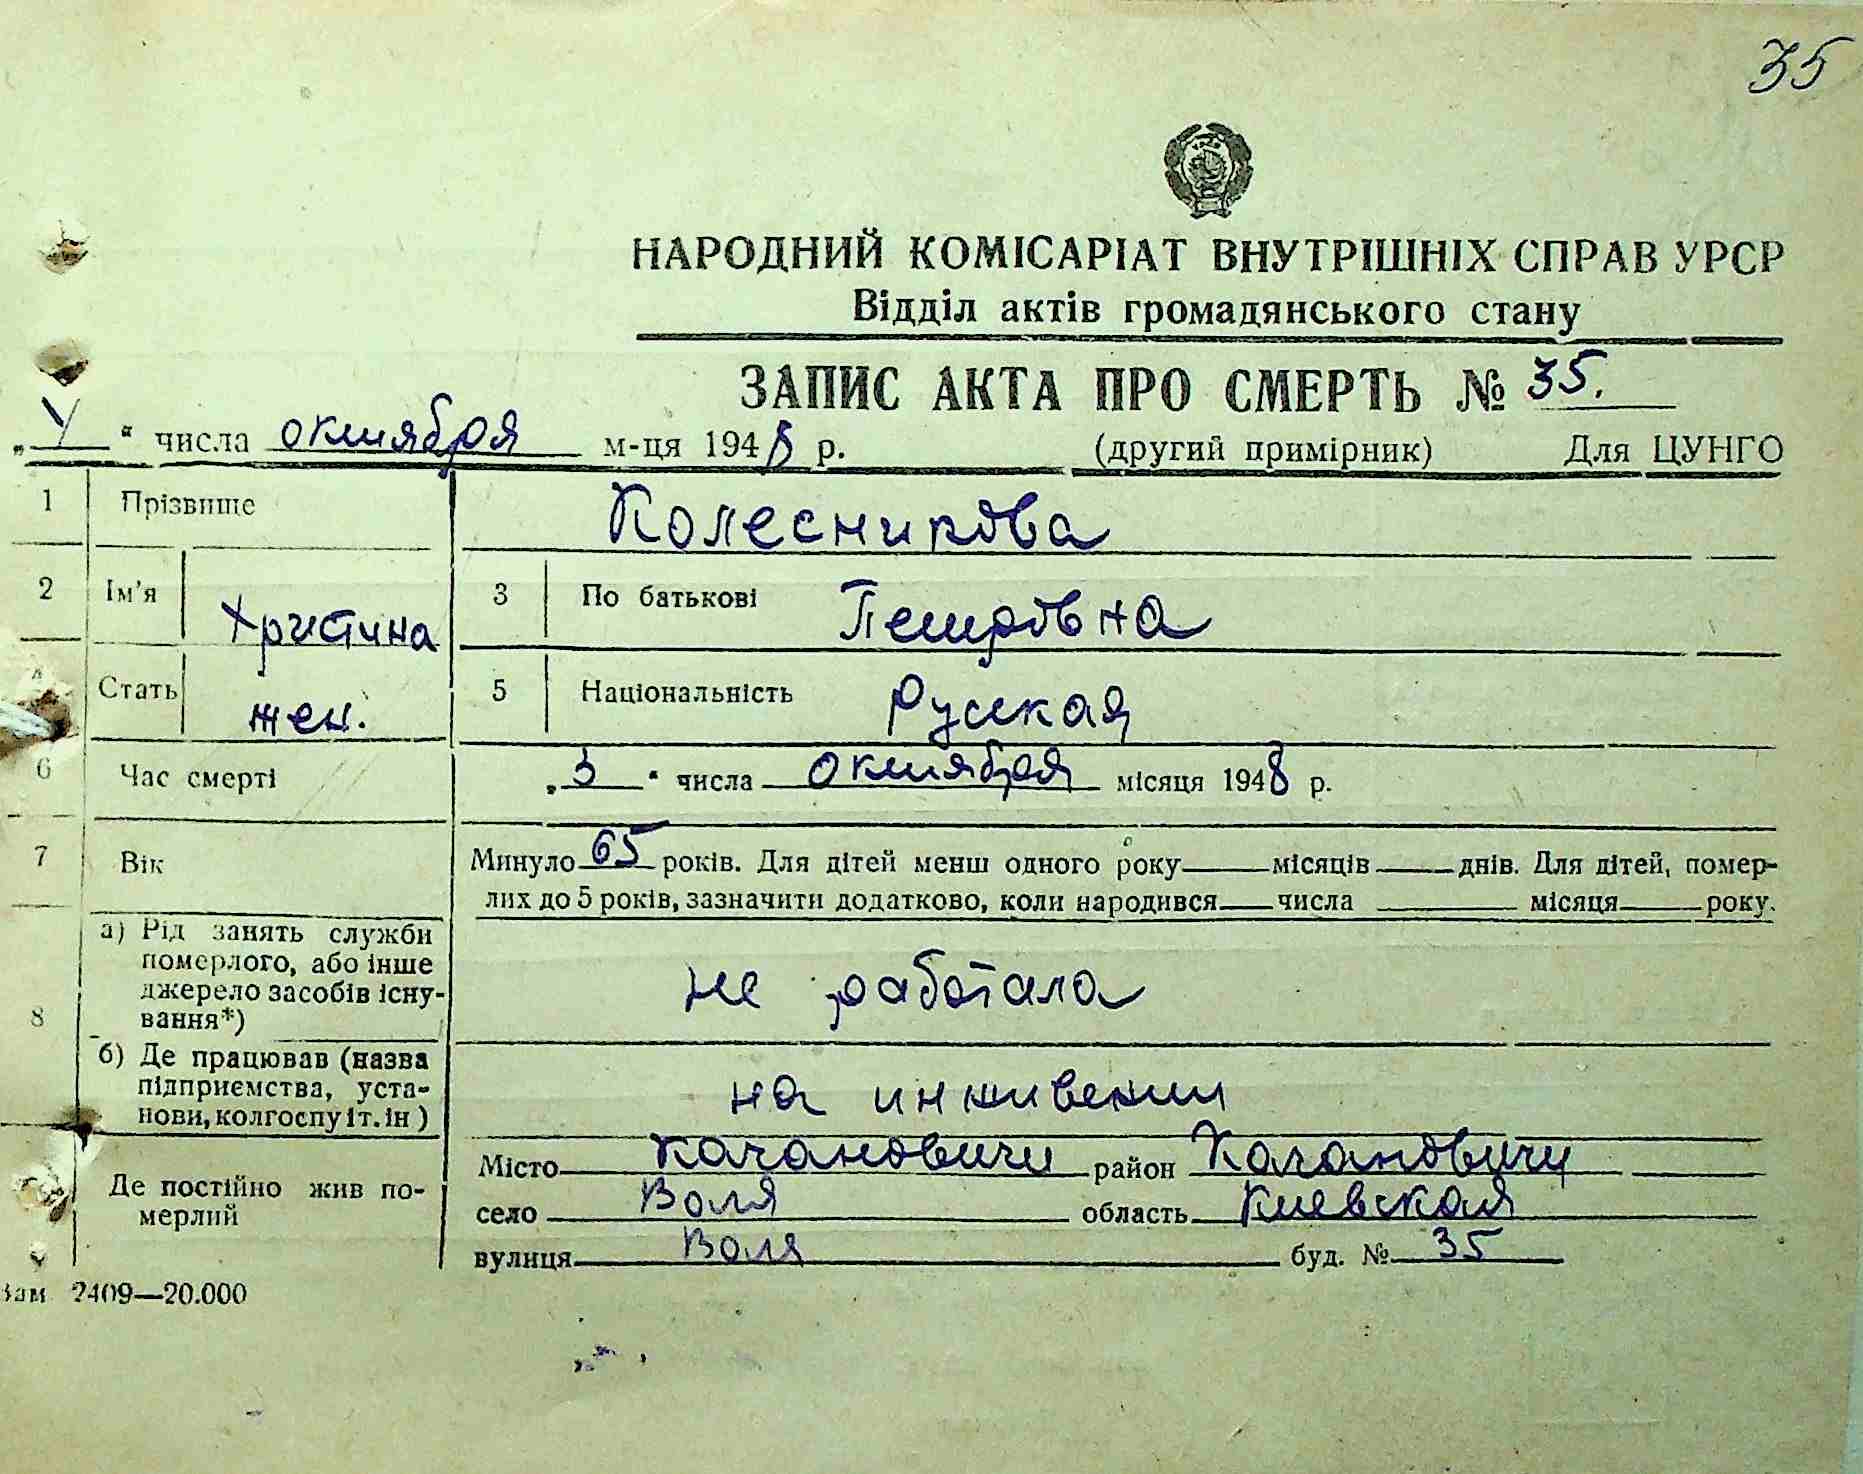 35
НАРОДНИЙ КОМІСАРІАТ ВНУТРІШНІХ СПРАВ УРСР
Відділ актів громадянського стану
ЗАПИС АКТА ПРО СМЕРТЬ № 35.
„ 4 “ числа октября м-ця 1948 р. (другий примірник) Для ЦУНГО
1 Прізвище Колесникова
2 Ім'я Христина 3 По батькові Петровна
4 Стать жен. 5 Національність Русская
6 Час смерті „ 3 “ числа октября місяця 1948 р.
7 Вік Минуло 65 років. Для дітей менш одного року місяців днів. Для дітей, помер-
лих до 5 років, зазначити додатково, коли народився числа місяця року.
8 а) Рід занять служби
померлого, або інше
джерело засобів існу-
вання*)
не работала
б) Де працював (назва
підприємства, уста-
нови, колгоспу і т. ін)
на
Де постійно жив по-
мерлий
Місто Качановичи район Качановичи
село Воля область Киевская
вулиця Воля буд. № 35
Зам 2409—20.000